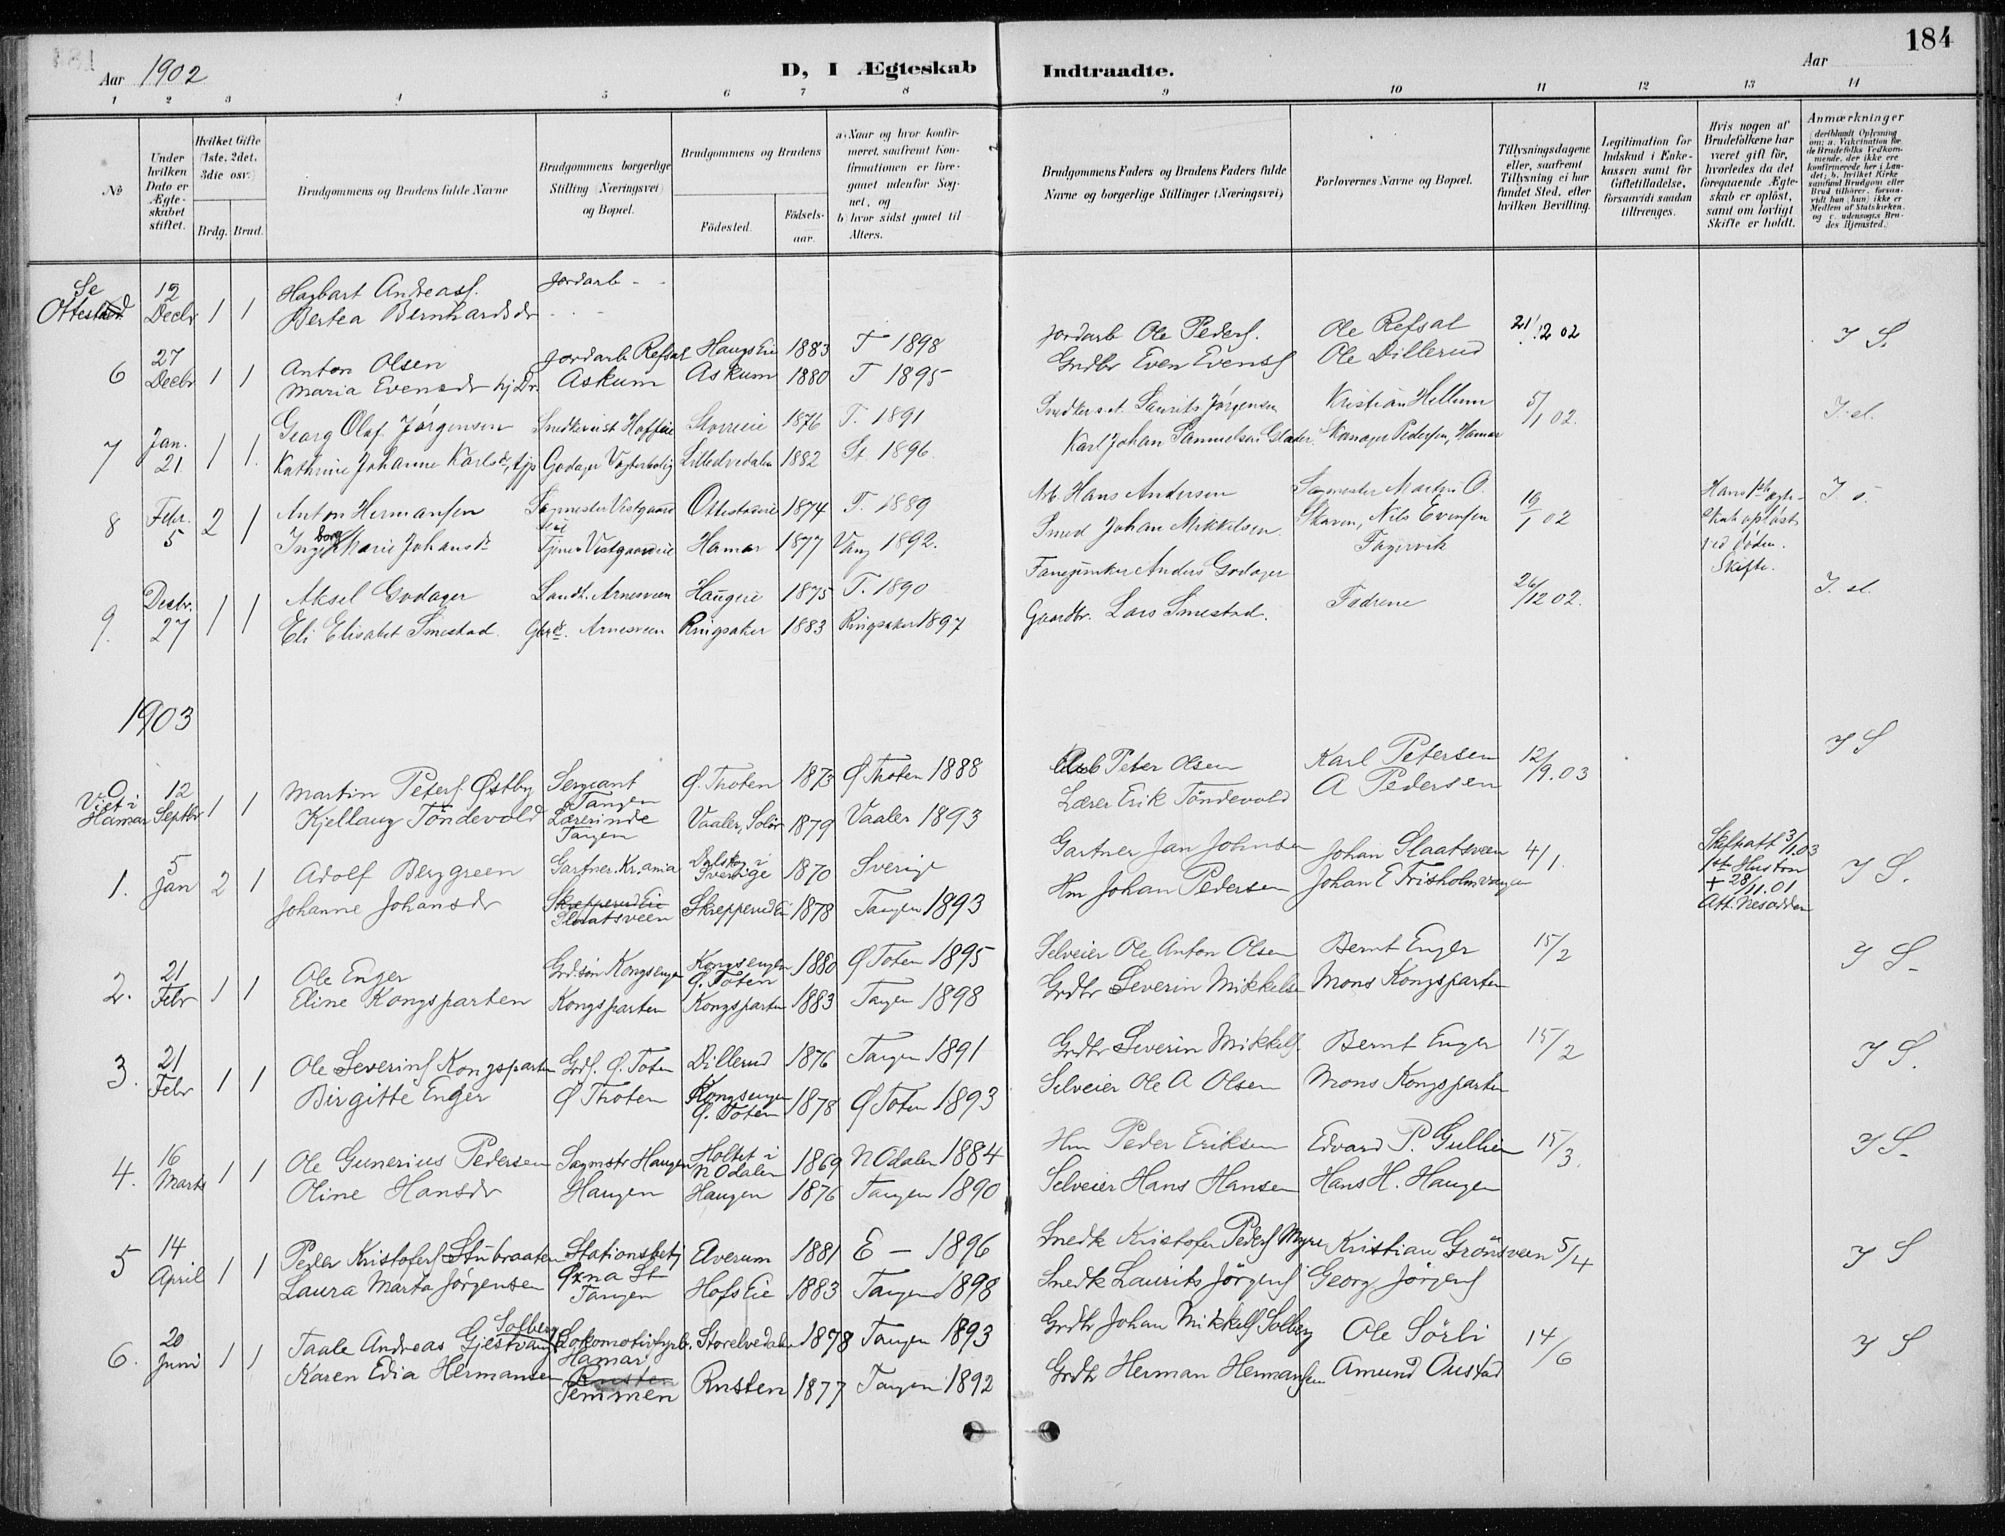 184
Aar 1902
D, I Ægteskab Indtraadte.
Aar
1 2 3 4 5 6 7 8 9 10 11 12 13 14
No
Under hvilken Dato er Ægteskabet stiftet.
Hvilket Gifte (1ste, 2det, 3die osv.)
Brdg. Brud.
Brudgommens og Brudens fulde Navne
Brudgommens borgerlige Stilling (Næringsvei) og Bopæl.
Brudgommens og Brudens
Fødested.
Fødselsaar.
a) Naar og hvor konfirmeret, saafremt Konfirmationen er foregaaet udenfor Sognet, og
b) hvor sidst gaaet til Alters.
Brudgommens Faders og Brudens Faders fulde Navne og borgerlige Stillinger (Næringsvei)
Forlovernes Navne og Bopæl.
Tillysningsdagene eller, saafremt Tillysning ei har fundet Sted, efter hvilken Bevilling.
Legitimation for Indskud i Enkekassen samt for Giftetilladelse, forsaavidt saadan tiltrænges.
Hvis nogen af Brudefolkene har været gift før, hvorledes da det foregaaende Ægteskab er opløst, samt om lovligt Skifte er holdt.
Anmærkninger
Se Ottestad 12 Decbr 1 1 Hagbart Andreass. Jordarb - -
Bertea Bernhardsdr - - -
6 27 Decbr 1 1 Anton Olsen Jordarb Refsal Haugs Eie 1883 T 1898 Jordarb Ole Peders. Ole Refsal 21/12 02 I S.
Maria Evensdr hj Dr. Askum Askum 1880 T 1895 Grdbr Even Evens Ole Dillerud
7 Jan. 21. 1 1. Georg Olaf Jørgensen 1876 T. 1891 Laurits Jørgensen Kristian Hellum 5/1 02.
Kathrine Johanne Karlsd. Godager Vogterbolig 1882 St 1896. Karl Johan Samuelsen Pedersen, Hamar
8 Febr. 5 2 1 Anton Hermansen Sagmester Vestgaardseie 1874 T. 1889 Arb. Hans Andersen Sagmester Martin O. 19/1 02 Hans 1ste ægteskab opløst ved døden. Skifte.
Ingeborg Marie Johansd. Tjener Vestgaardseie Hamar 1877 Vang 1892. Smed Johan Mikkelsen. Skaven, Nils Evensen Fagervik
9. Decbr. 27 1 1 Aksel Godager Landh. Arnesveen Haugeie 1875 T. 1890 Anders Godager Fædrene 26/12 02.
Eli Elisabet Smestad. Arnesveen Ringsaker 1883 Ringsaker 1897 Gaardbr. Lars Smestad.
1903
0 Viet i Hamar 12 Septbr 1 1 Martin Peters. Østby Sergeant Tangen Ø. Thoten 1873 Ø Thoten 1888 Arb Peter Olsen Karl Petersen 12/9.03 I S
Kjellaug Töndevold Lærerinde Tangen Vaaler, Solør 1879 Vaaler 1893 Lærer Erik Töndevold A Pedersen
1. 5 Jan 2 1 Adolf Berggreen Gartner Kr.ania Dalskog i Sverige 1870 Sverige Gartner Jan Johnsen Johan Slaatsveen 4/1. Skifteatt 3/1.03 1ste Hustru + 28/11.01 Att. Nesodden I S.
Johanne Johansdr Skrepperud Eie Slaatsveen Skrepperud Ei 1878 Tangen 1893 Hm Johan Pedersen Johan E Frisholmvangen
2. 21 Febr 1 1 Ole Enger Grdsøn Kongsengen Kongsengen Ø. Toten 1880 Ø Toten 1895 Selveier Ole Anton Olsen Bernt Enger 15/2 I S.
Eline Kongsparten Kongsparten Kongsparten 1883 Tangen 1898 Grdbr Severin Mikkelsen Mons Kongsparten
3. 21 Febr 1 1 Ole Severins Kongsparten Grds. Ø. Toten Dillerud 1876 Tangen 1891 Grdbr Severin Mikkels. Bernt Enger 15/2 I S.
Birgitte Enger Ø Thoten Kongsengen Ø. Toten 1878 Ø Toten 1893 Selveier Ole A Olsen Mons Kongsparten
4. 16 Marts 1 1 Ole Gunerius Pedersen Sagmstr Haugen Holtet i N Odalen 1869 N Odalen 1884 Hm Peder Eriksen Edvard P. Gullien 15/3. I S.
Oline Hansdr Haugen Haugen 1876 Tangen 1890 Selveier Hans Hansen Hans H. Haugen
5 14 April 1 1 Peder Kristofers Stubraaten Stationsbetj Øxna St Elverum 1881 E - 1896 Snedk Kristofer Peders Myre Kristian Grönsveen 5/4 I S
Laura Marta Jørgensen Tangen Hofs Eie 1883 Tangen 1898 Snedk Laurits Jörgens Georg Jörgens
6. 20 Juni 1 1 Taale Andreas Gjestvang Solberg Hamar Storelvedalen 1878 Tangen 1893 Grdbr Johan Mikkels Solberg Ole Sörli 14/6 I S
Karen Edia Hermansen Rusten Temmen Rusten 1877 Tangen 1892 Grdbr Herman Hermansen Amund Oustad